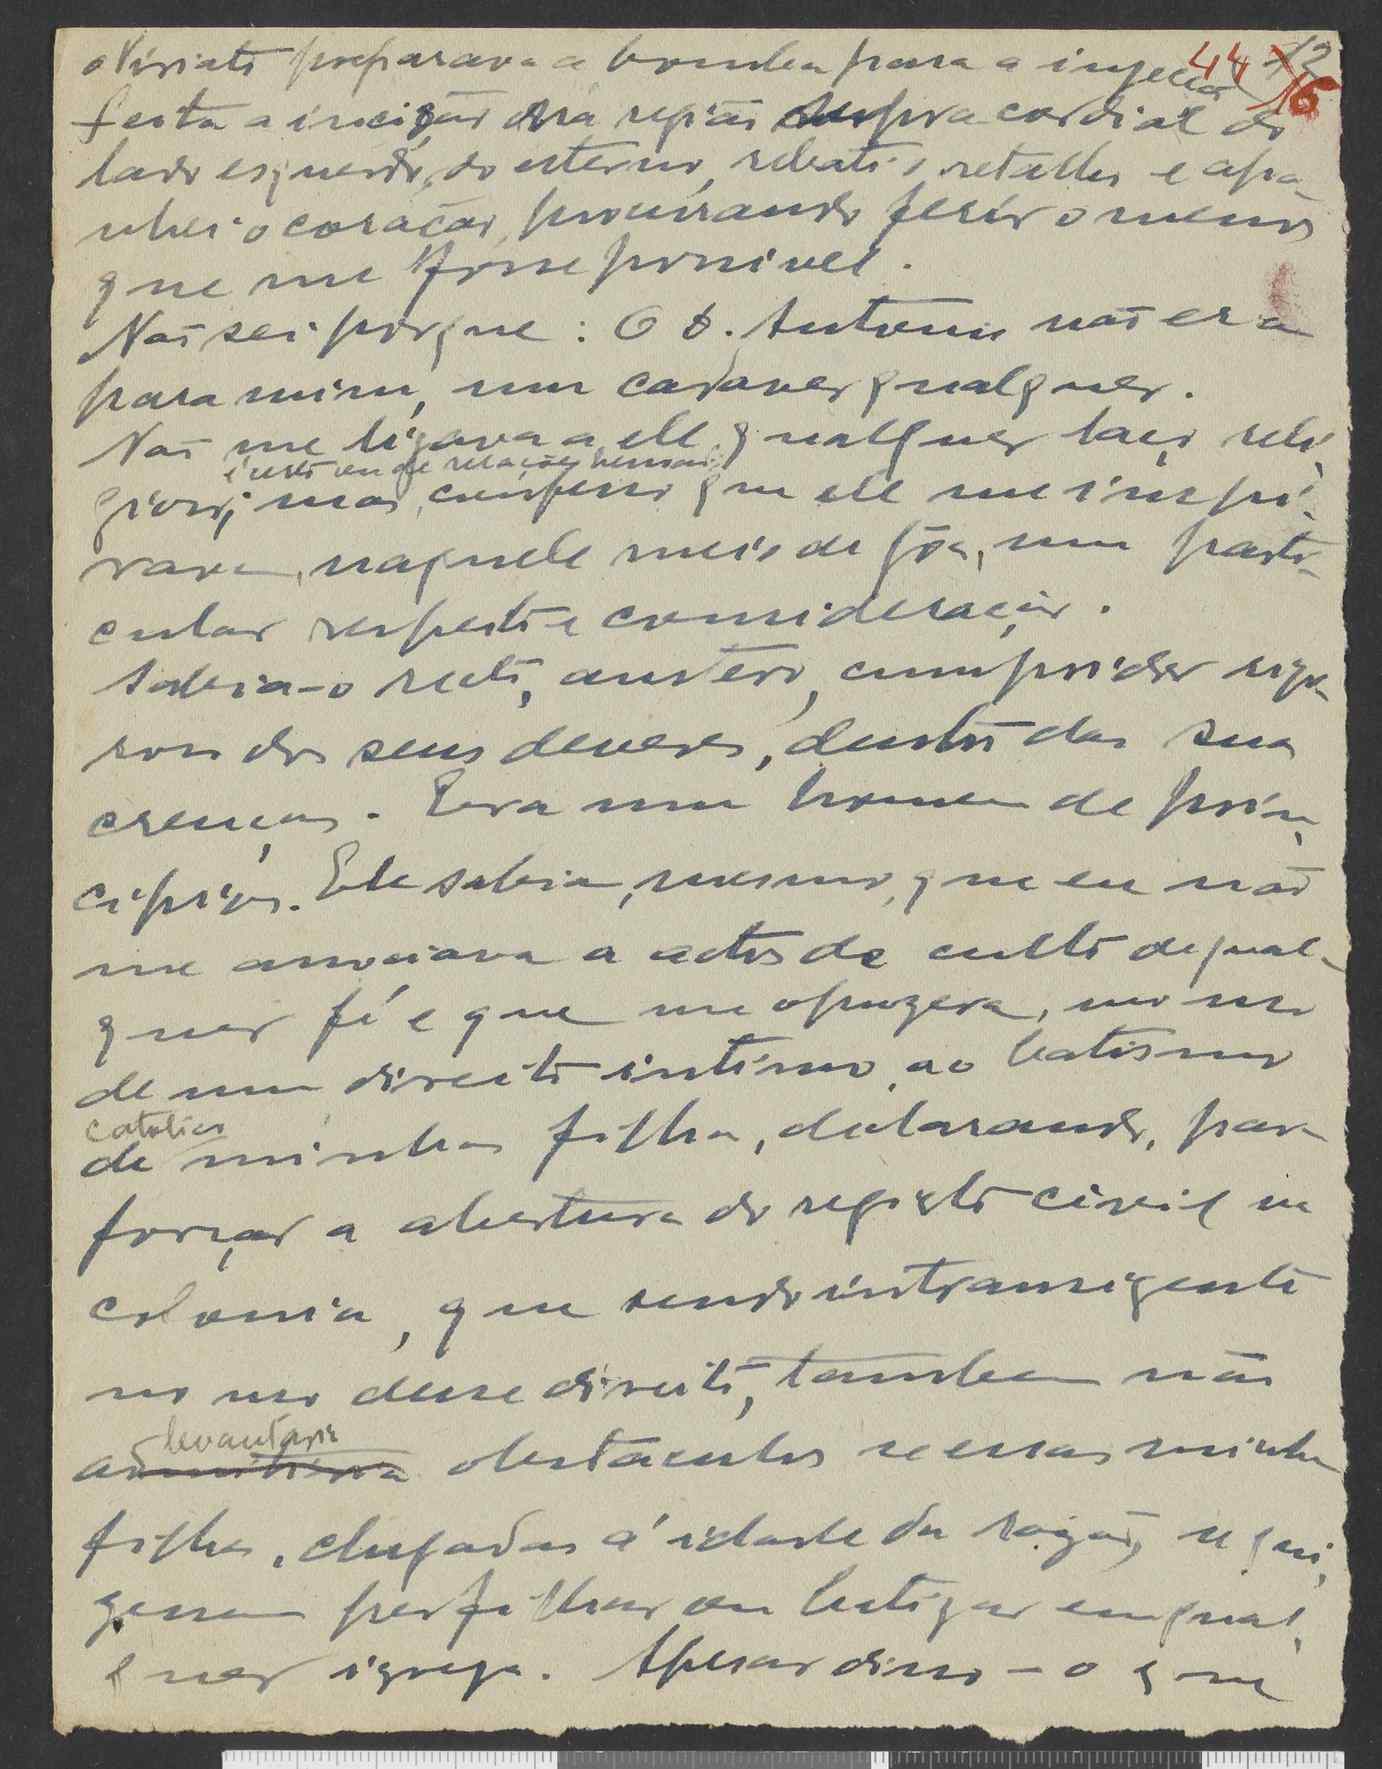 44 12
16
o Viriato preparava a bomba para a injecção
feita a incisão na região supra cordial do
lado esquerdo, do esterno, rebati o retalho e apa-
nhei o coração, procurando ferir o menos
que me fosse possivel.
Não sei porque: O D. Antonio não era
para mim, um cadaver qualquer.
Não me ligava a ele qualquer laço reli-
gioso; mas, confesso que ele me inspi-
rava, naquele meio de Gôa, um parti-
cular respeito e consideração.
Sabia-o recto, austero, cumpridor rigo-
roso dos seus deveres, dentro das suas
crenças. Era um homem de prin-
cipios. Ele sabia, mesmo, que eu não
me associava a actos de culto de qual-
quer fé e que me opuzera, no uso
de um direito intimo, ao batismo
catolico
de minhas filhas, declarando, para
forçar a abertura do registo civil na
colonia, que sendo intransigente
no uso desse direito, tambem não
levantaria
admitiria obstaculos se essas minhas
filhas, chegadas á idade da razão, se qui-
zessem perfilhar ou batizar em qual-
quer igreja. Apesar disso - o que